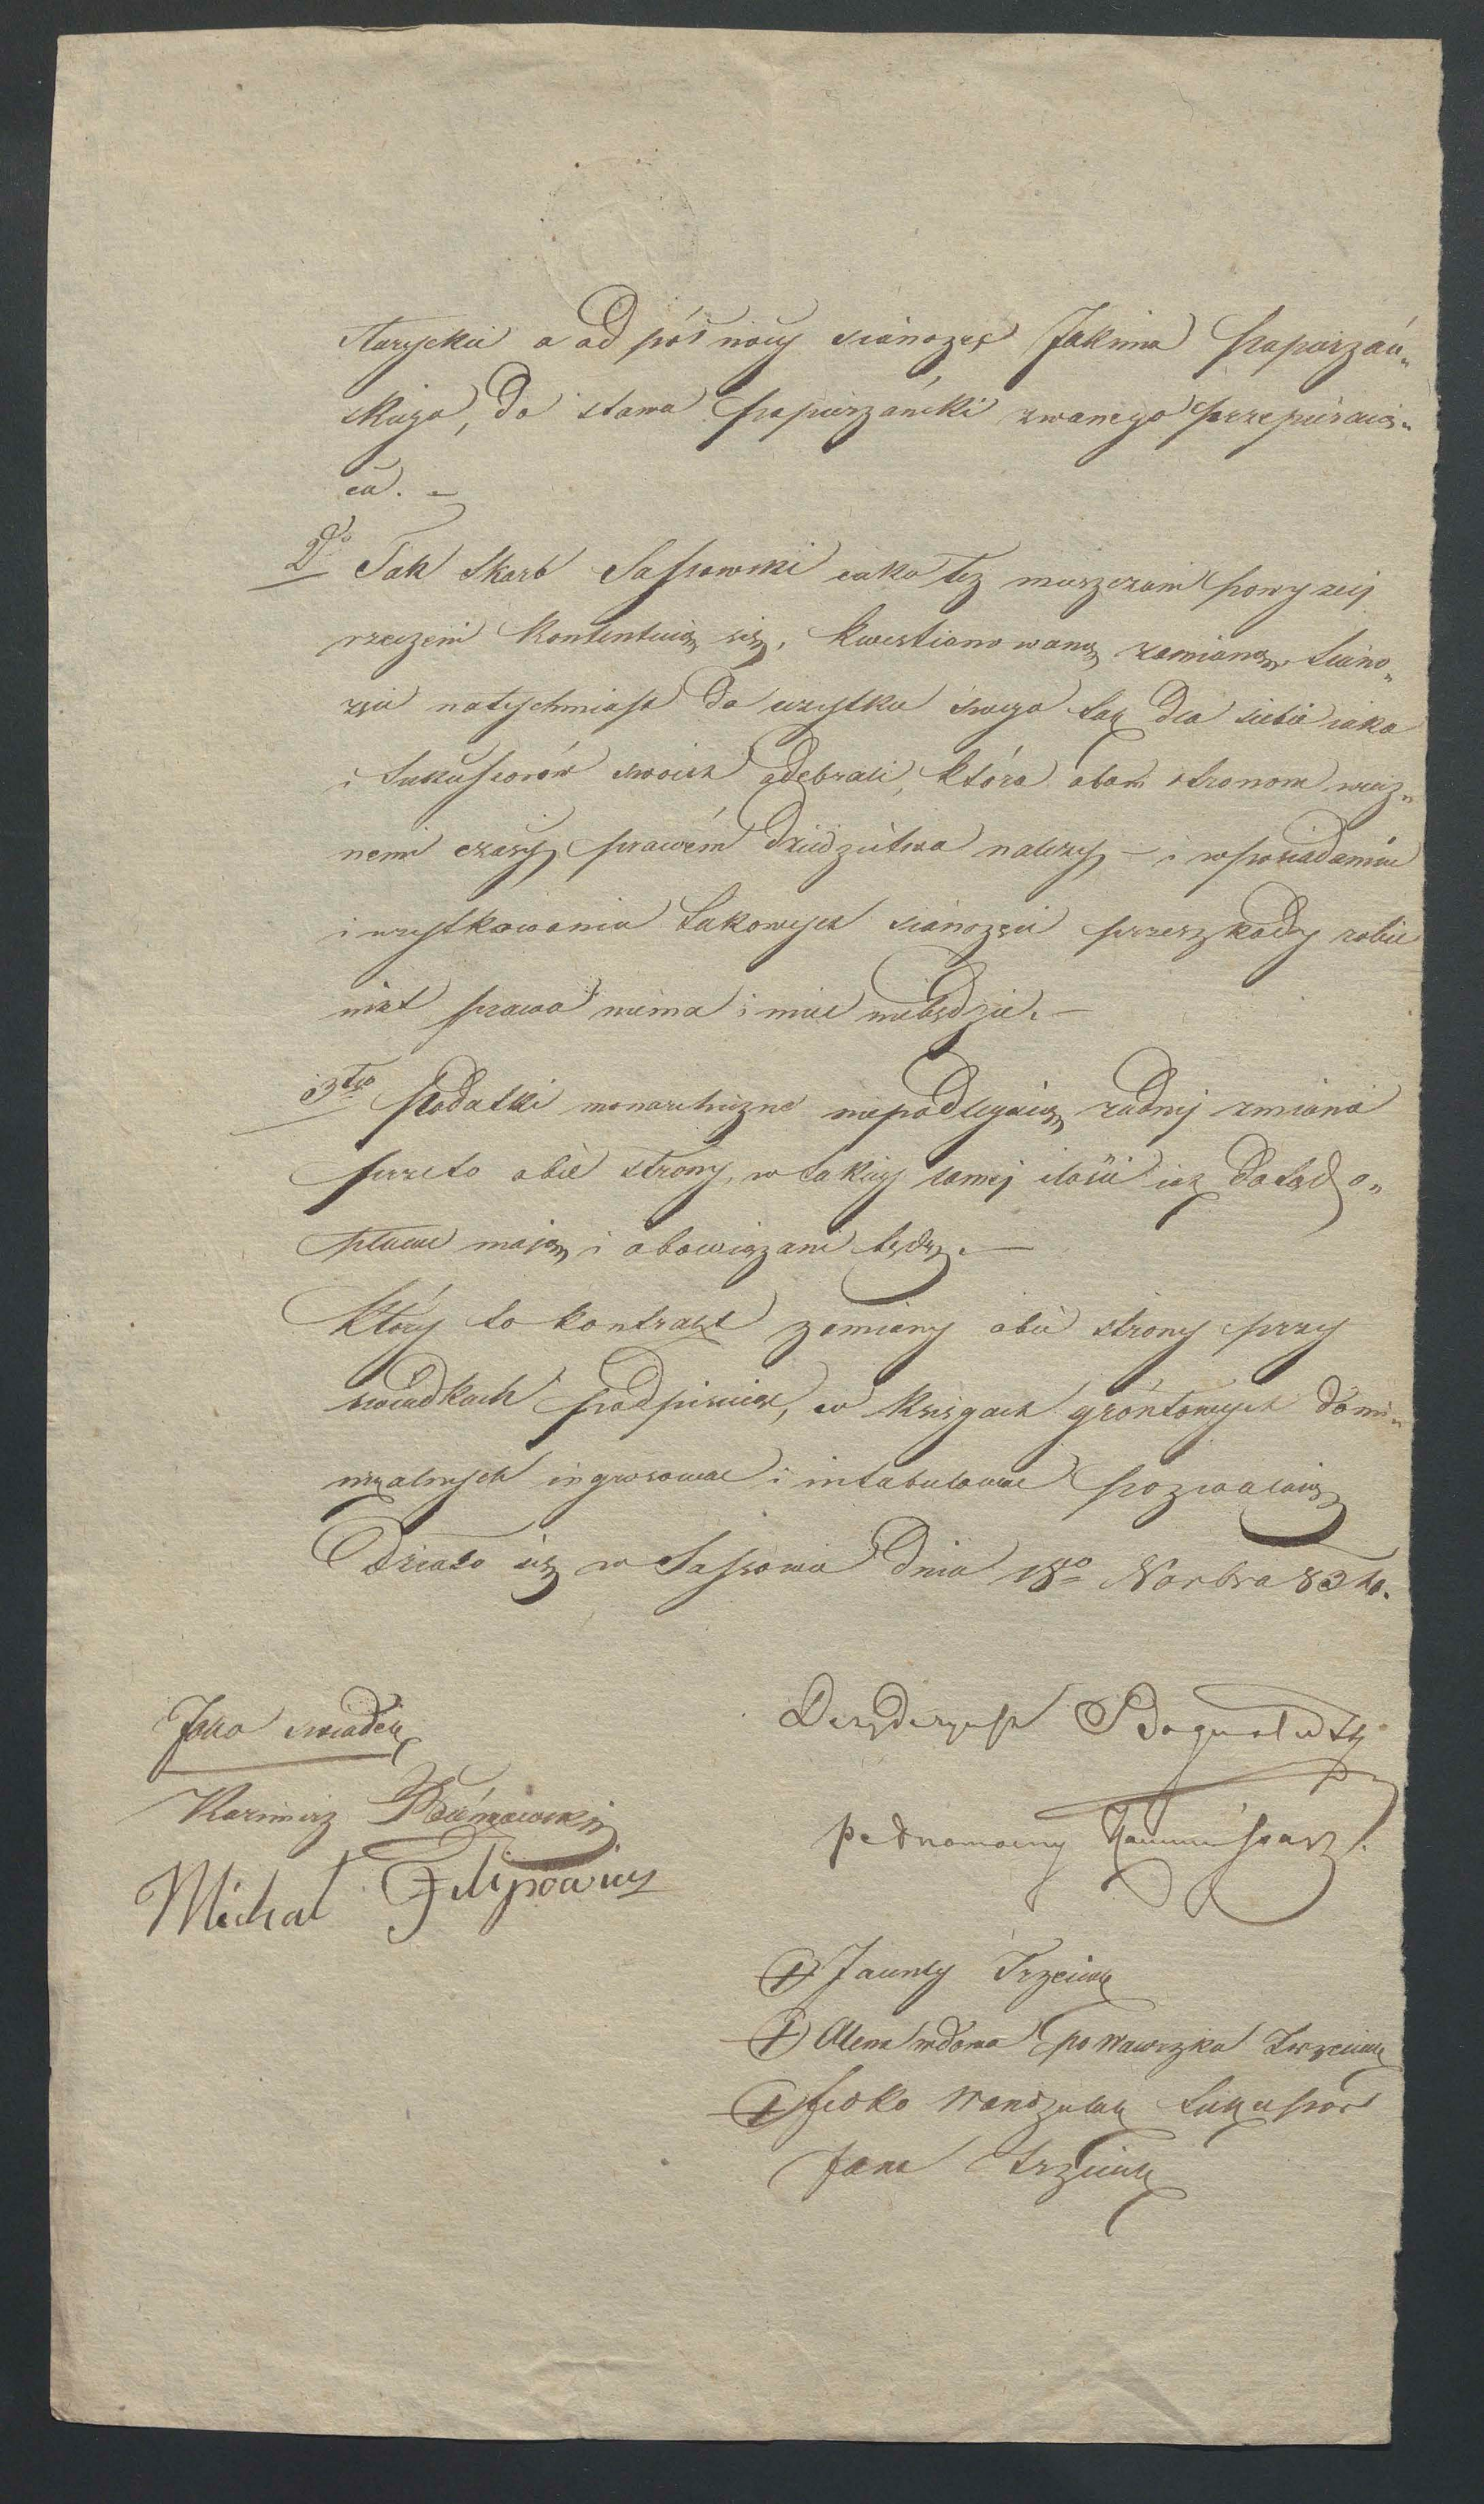 Staryckie a od północy sianożęć Jakima Papierzań„
skiego, do stawu Papierzański zwanego przypieraią„
ca. —
2do Tak Skarb Sassowski iako też mieszczanie powyżej
rzeczeni kontentuią się, kwestionowaną zamianą. Siano„
żęcie natychmiast do użytku swego tak dla siebie iako
i Sukcessorów swoich odebrali, która obom stronom wiecz„
nemi czasy prawem dziedzictwa należy — i w posiadaniu
i użytkowaniu takowych sianożęci przeszkody robić
nikt prawa niema i mieć niebędzie. —
3tio Podatki monarchiczne niepodlegaią żadnej zmianie
przeto obie strony, w takiej samej ilości iak dotąd o„
płacać mają i obowiązani będą. —
Który to kontrakt zamiany obie strony przy
swiadkach podpisuiąc, w księgach gróntowych domi„
nikalnych ingrosować i intabulować pozwalaią
Działo się w Sassowie dnia 18go Novbra 83
Jako swiadek
Kazimierz
Michał Filipowicz
Dezydery
pełnomocny Kommissarz.
Jacenty Trzeciak
Olena wdowa po Wawrzku Trzeciak
Fedko Wandzulak Sukcessor
Jana Trzeciak